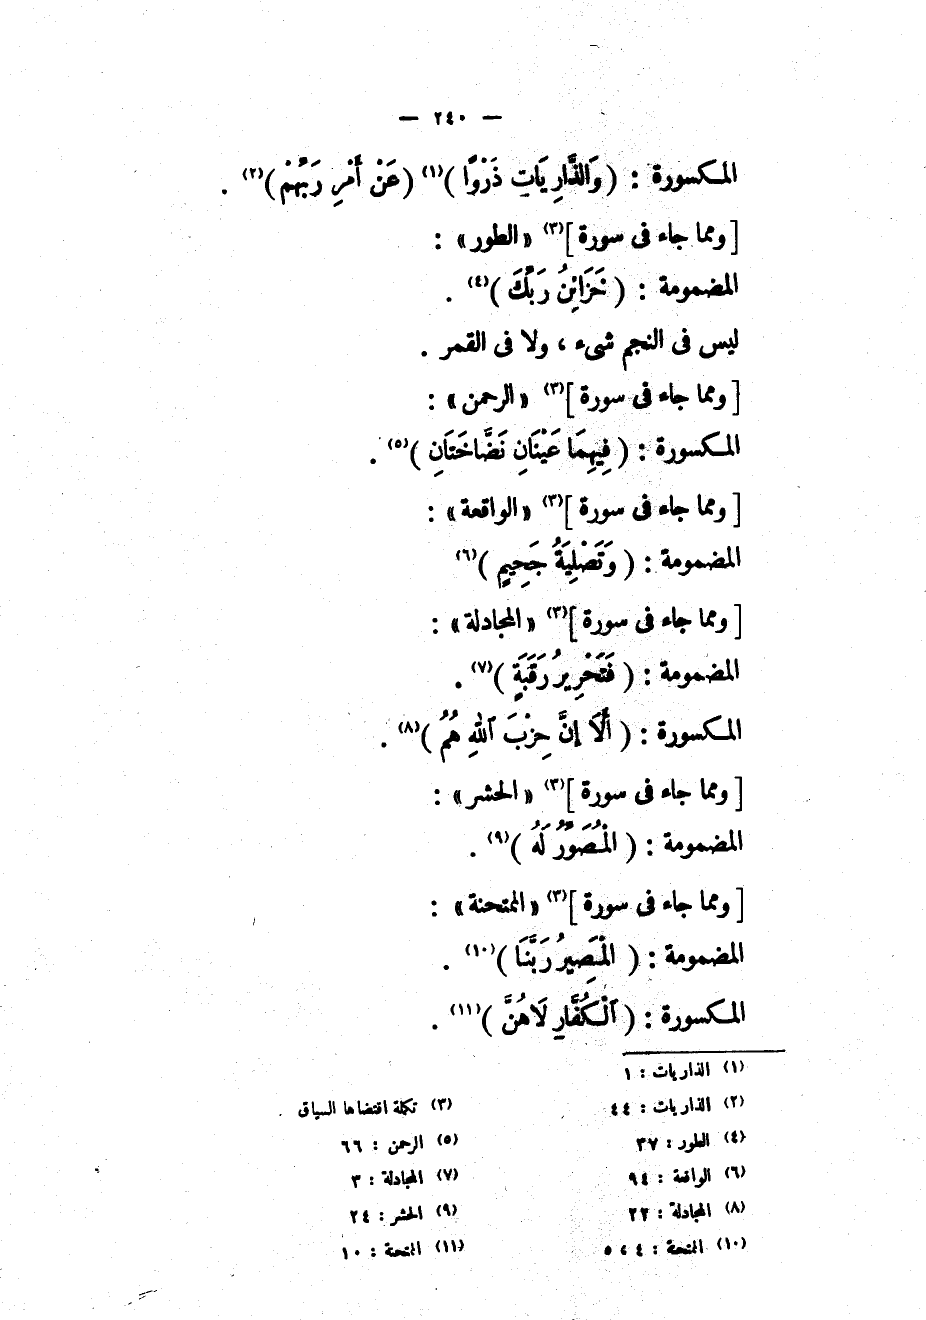 — ٢٤٠ —
المكسورة : ( وَالذَّارِيَاتِ ذَرْوًا )(١) ( عَنْ أَمْرِ رَبِّهِمْ )(٢) .
[ ومما جاء فى سورة ](٣) « الطور » :
المضمومة : ( خَزَائِنُ رَبِّكَ )(٤) .
ليس فى النجم شىء ، ولا فى القمر .
[ ومما جاء فى سورة ](٣) « الرحمن » :
المكسورة : ( فِيهِمَا عَيْنَانِ نَضَّاخَتَانِ )(٥) .
[ ومما جاء فى سورة ](٣) « الواقعة » :
المضمومة : ( وَتَصْلِيَةُ جَحِيمٍ )(٦)
[ ومما جاء فى سورة ](٣) « المجادلة » :
المضمومة : ( فَتَحْرِيرُ رَقَبَةٍ )(٧) .
المكسورة : ( أَلَا إِنَّ حِزْبَ ٱللهِ هُمُ )(٨) .
[ ومما جاء فى سورة ](٣) « الحشر » :
المضمومة : ( الْمُصَوِّرُ لَهُ )(٩) .
[ ومما جاء فى سورة ](٣) « الممتحنة » :
المضمومة : ( الْمَصِيرُ رَبَّنَا )(١٠) .
المكسورة : ( ٱلْكُفَّارِ لَاهُنَّ )(١١) .
(١) الذاريات : ١
(٢) الذاريات : ٤٤ (٣) تكملة اقتضاها السياق
(٤) الطور : ٣٧ (٥) الرحمن : ٦٦
(٦) الواقعة : ٩٤ (٧) المجادلة : ٣
(٨) المجادلة : ٢٢ (٩) الحشر : ٢٤
(١٠) الممتحنة : ٤ ، ٥ (١١) الممتحنة : ١٠